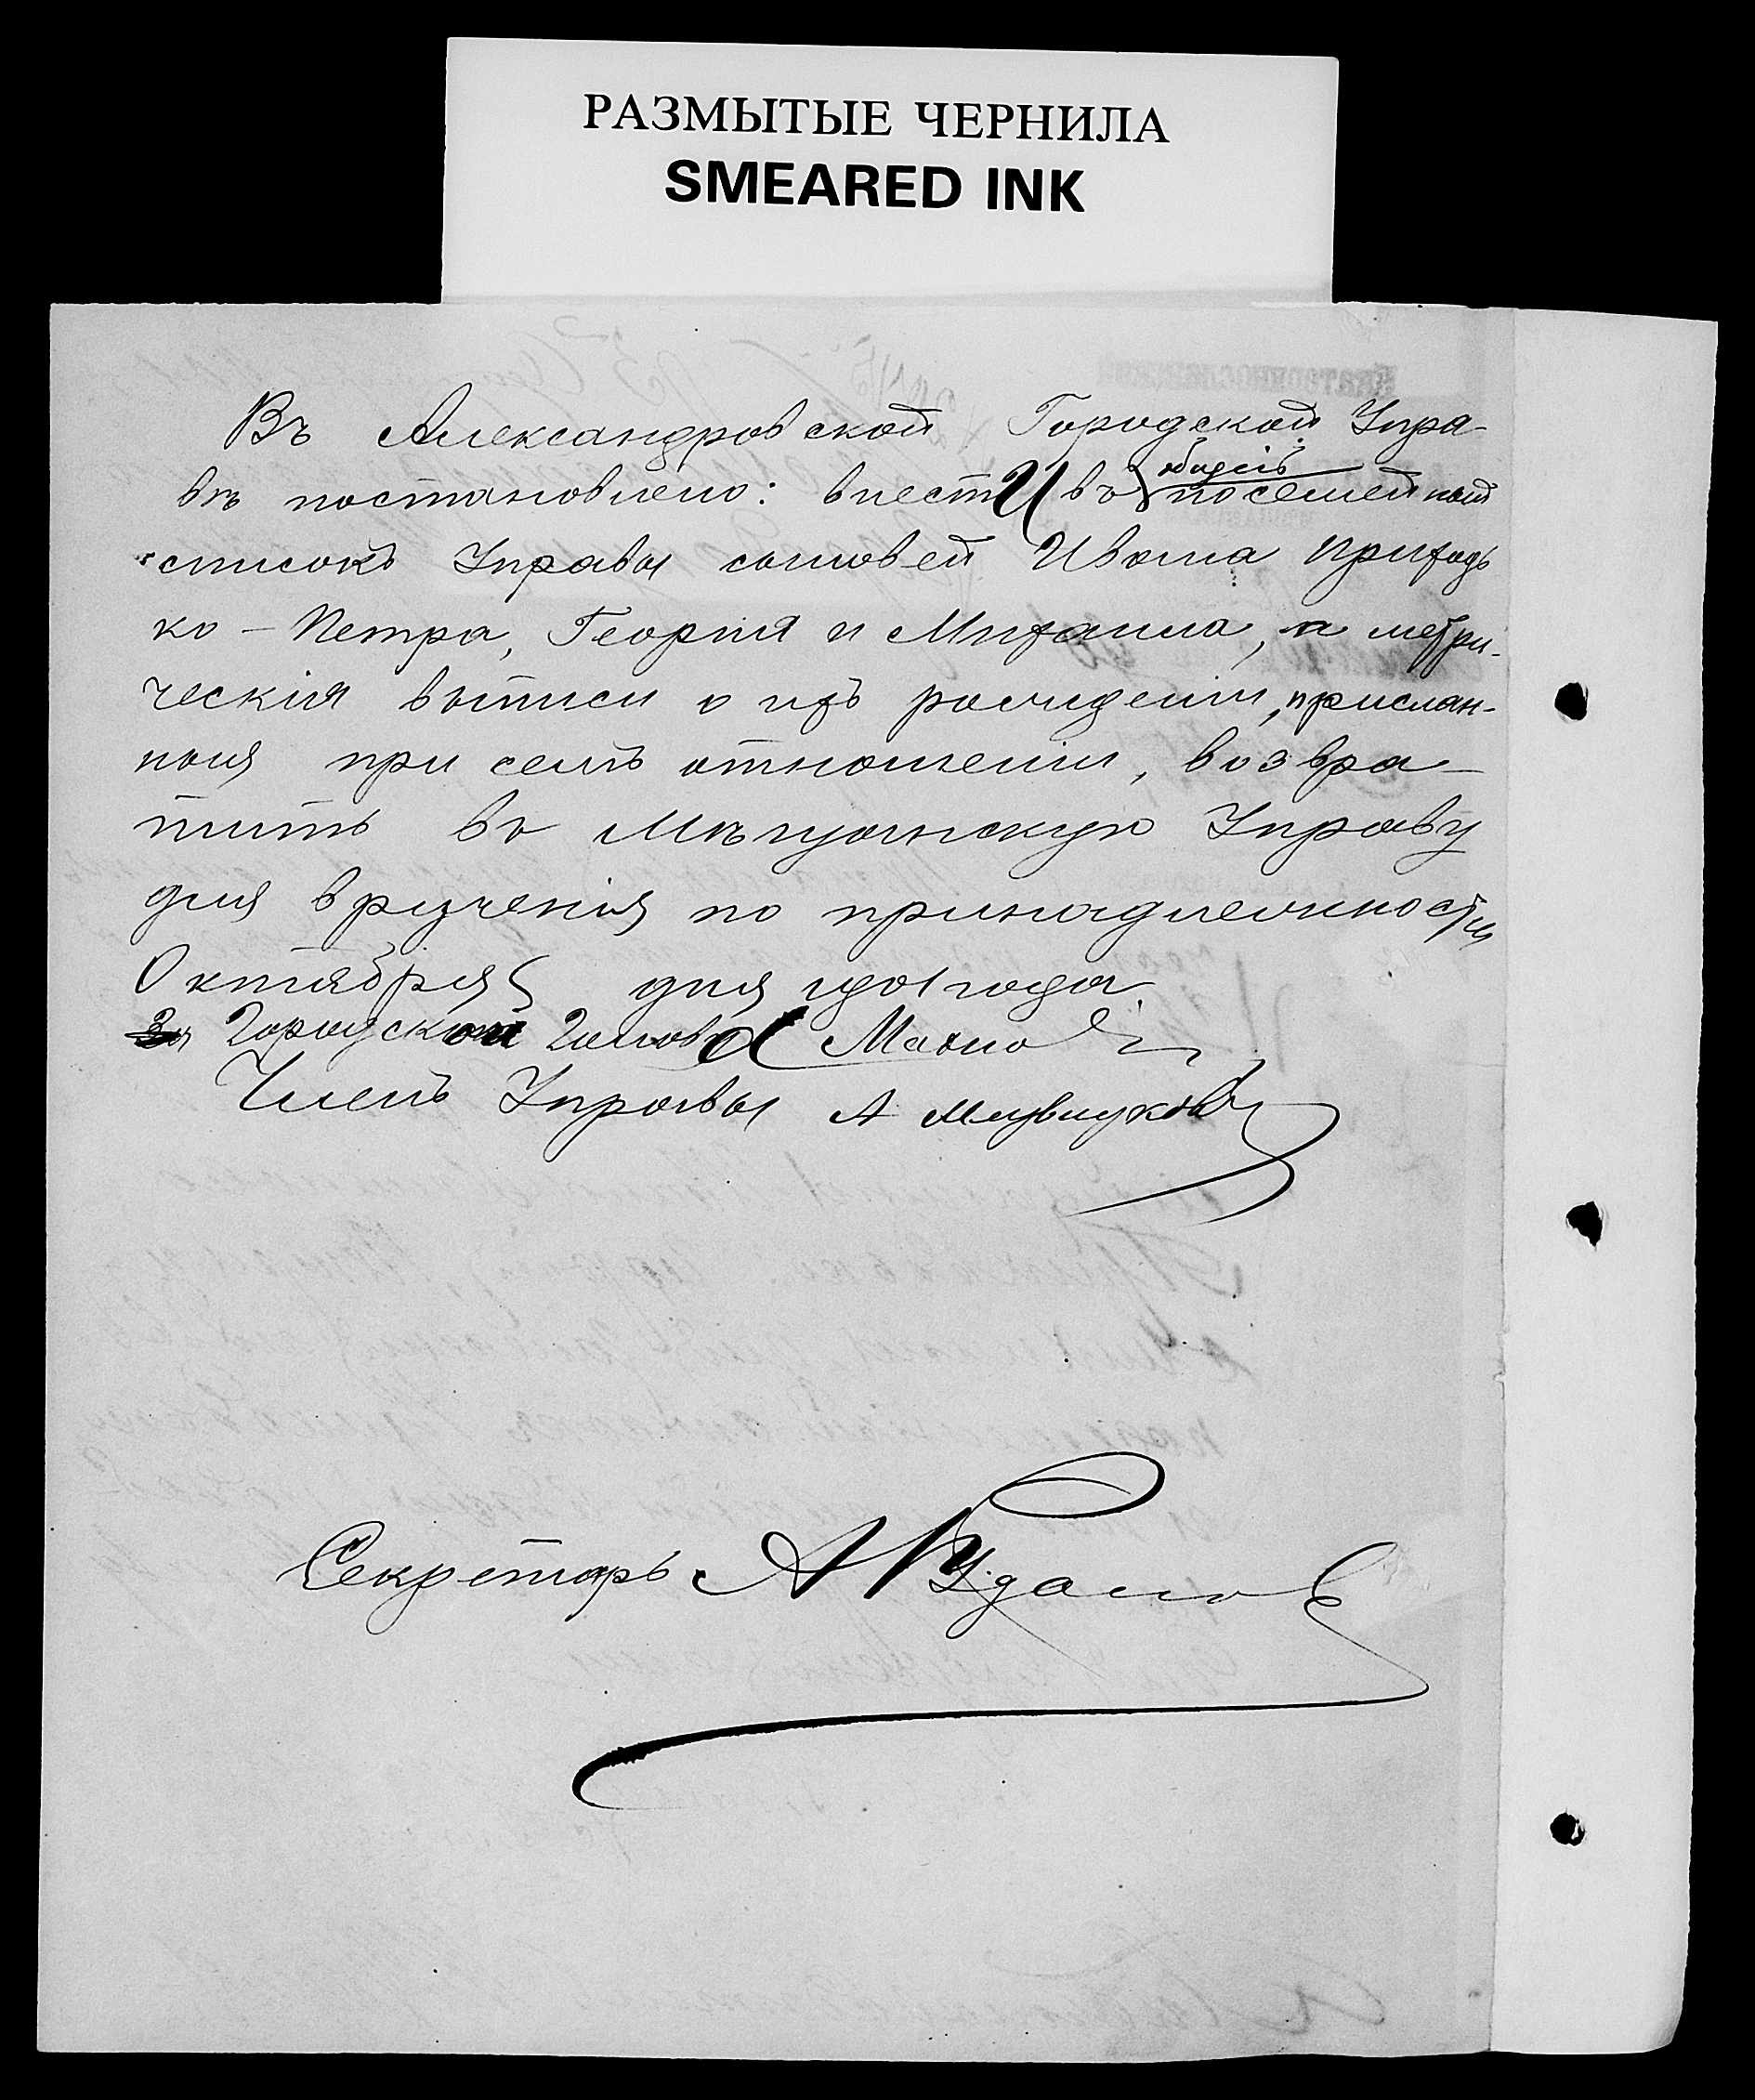 РАЗМЫТЫЕ ЧЕРНИЛА
SMEARED INK
Въ Александровской Городской Упра-
вѣ постановлено: внести въ посемейный
списокъ Управы сыновей Ивана Приходь
ко - Петра, Георгія и Михаила, а метри-
ческія выписи о ихъ рожденіи, прислан-
ныя при семъ отношеніи, возвра-
тить въ Мѣщанскую Управу
для врученія по принадлежности
Октября дня 1901 года
За Городской Голова Махно
Членъ Управы А
Секретарь А